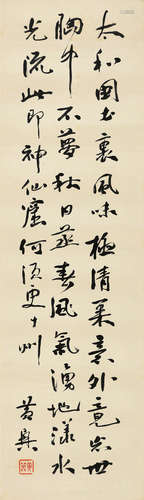 太和國土裏風味極清柔言外竟忘世
胸中不夢秋日蒸春風氣湧地漾水
光流此即神仙窟何須更十州
黃興